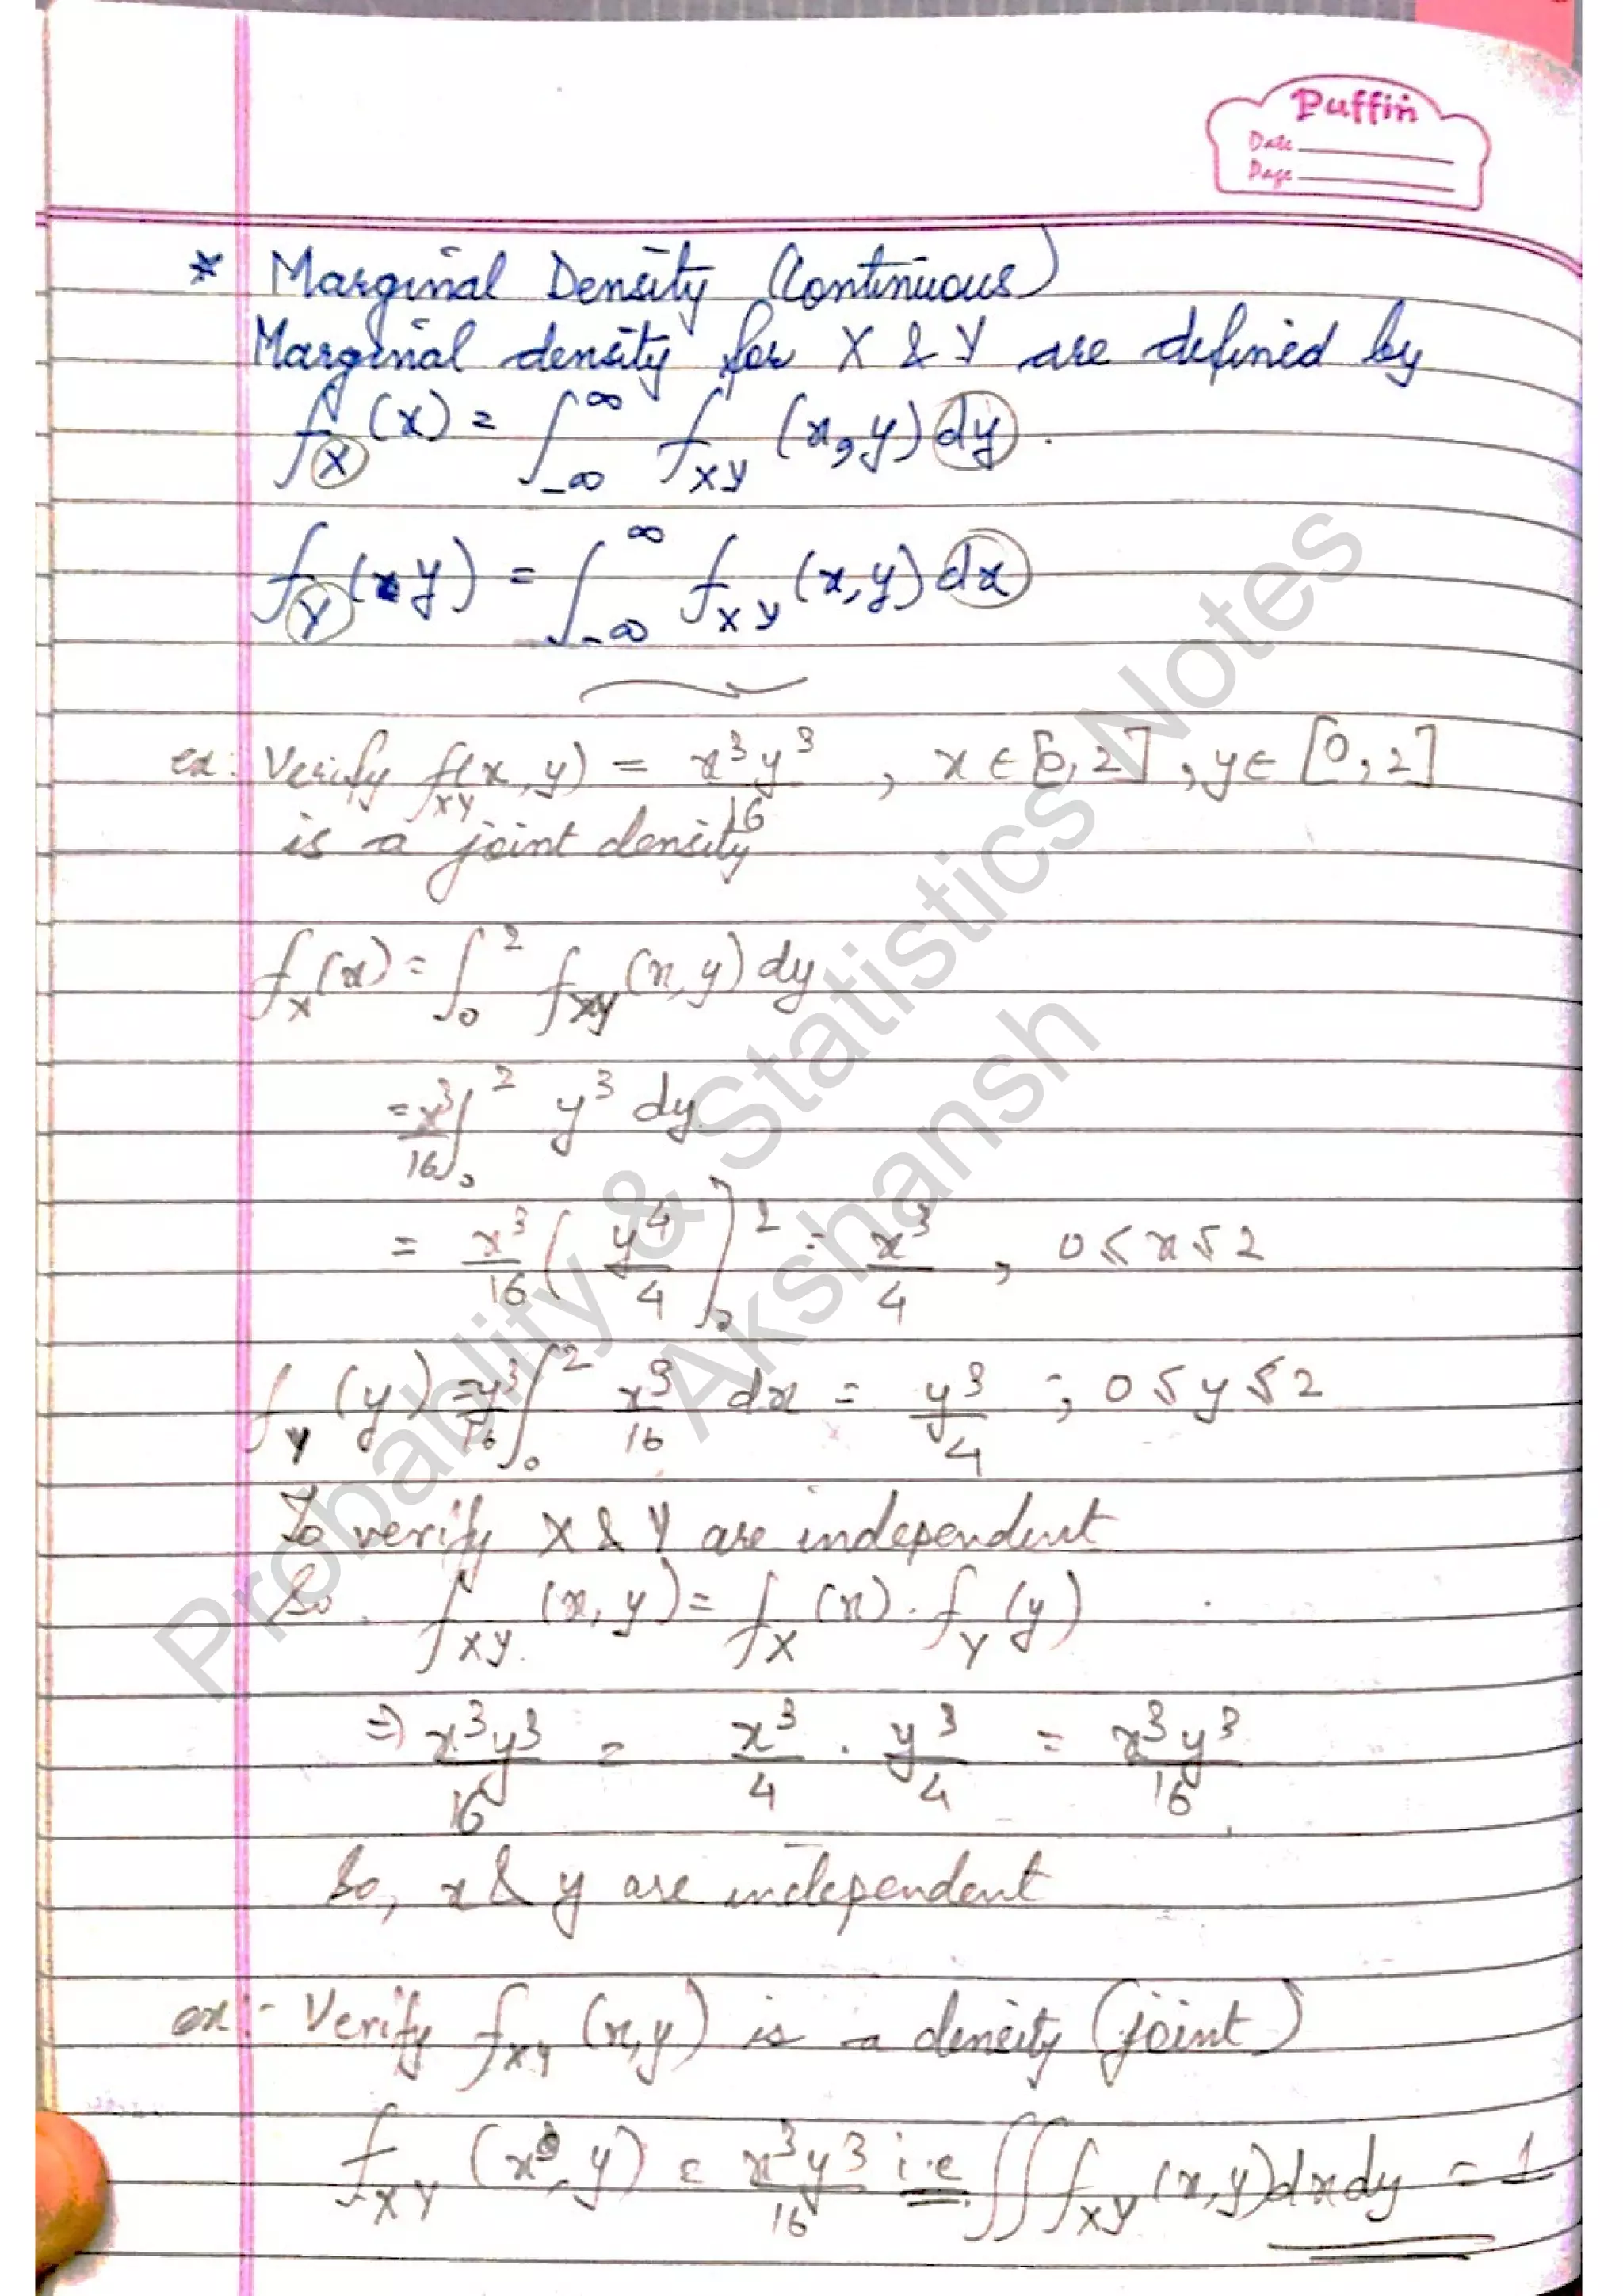 Puffin
Date
Page
* Marginal Density (Continuous)
Marginal density for X & Y are defined by
f_X (x) = ∫_{-∞}^{∞} f_{XY} (x, y) dy.
f_Y (y) = ∫_{-∞}^{∞} f_{XY} (x, y) dx
ex: Verify f_{XY}(x, y) = x³y³/16, x ∈ [0, 2], y ∈ [0, 2]
is a joint density
f_X (x) = ∫_0^2 f_{XY} (x, y) dy
= x³/16 ∫_0^2 y³ dy
= x³/16 ( y⁴/4 ]_0^2 = x³/4, 0 ≤ x ≤ 2
f_Y (y) = y³/16 ∫_0^2 x³/16 dx = y³/4 ; 0 ≤ y ≤ 2
To verify X & Y are independent
So. f_{XY} (x, y) = f_X (x) . f_Y (y)
⇒ x³y³/16 = x³/4 . y³/4 = x³y³/16
So, x & y are independent
ex:- Verify f_{XY} (x, y) is a density (joint)
f_{XY} (x, y) = x³y³/16 i.e ∫∫ f_{XY} (x, y) dx dy = 1
Probability & Statistics Notes
Akshansh